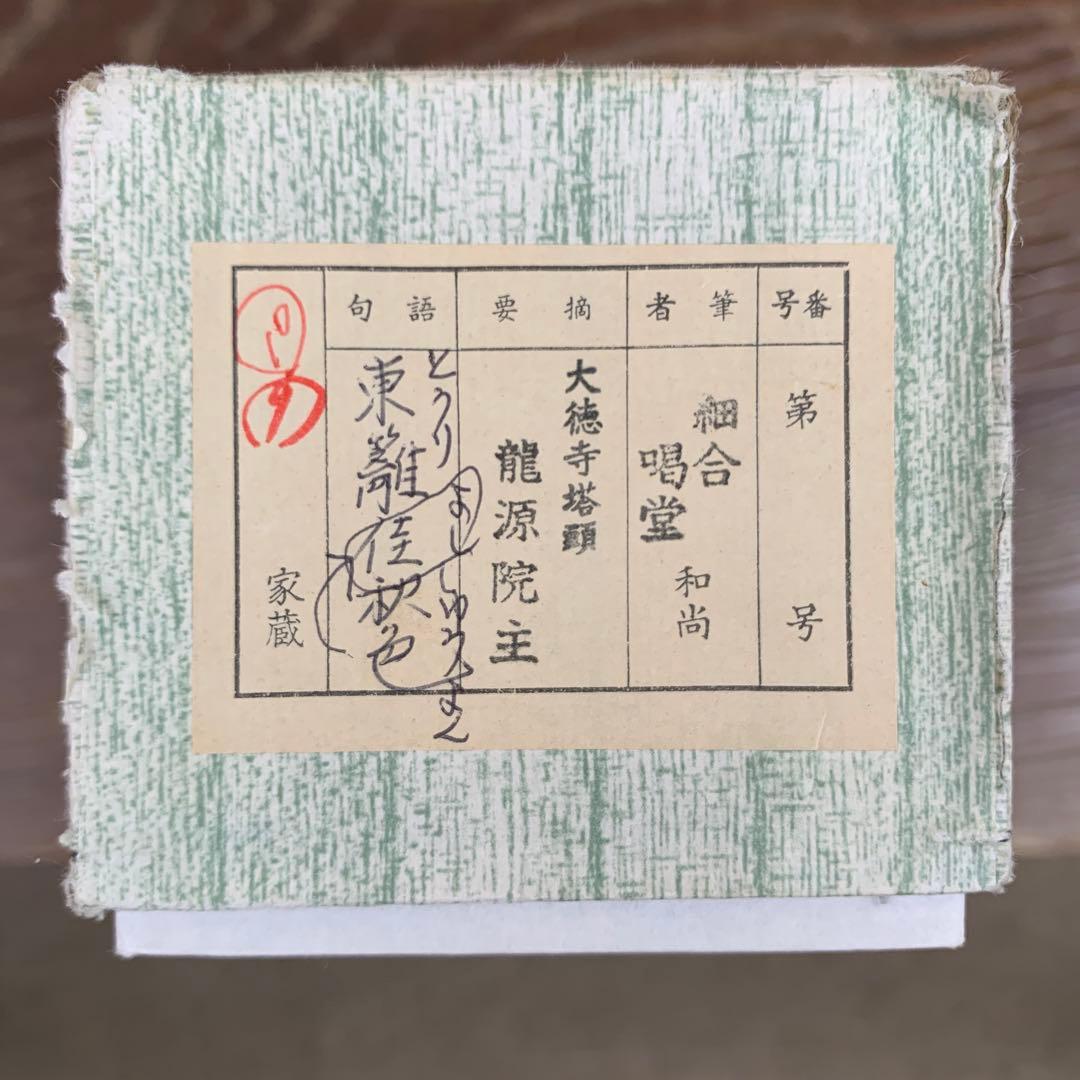 番号
第 号
筆者
細合
喝堂
和尚
摘要
大徳寺塔頭
龍源院主
語句
とうり
東籬佳秋色
家蔵